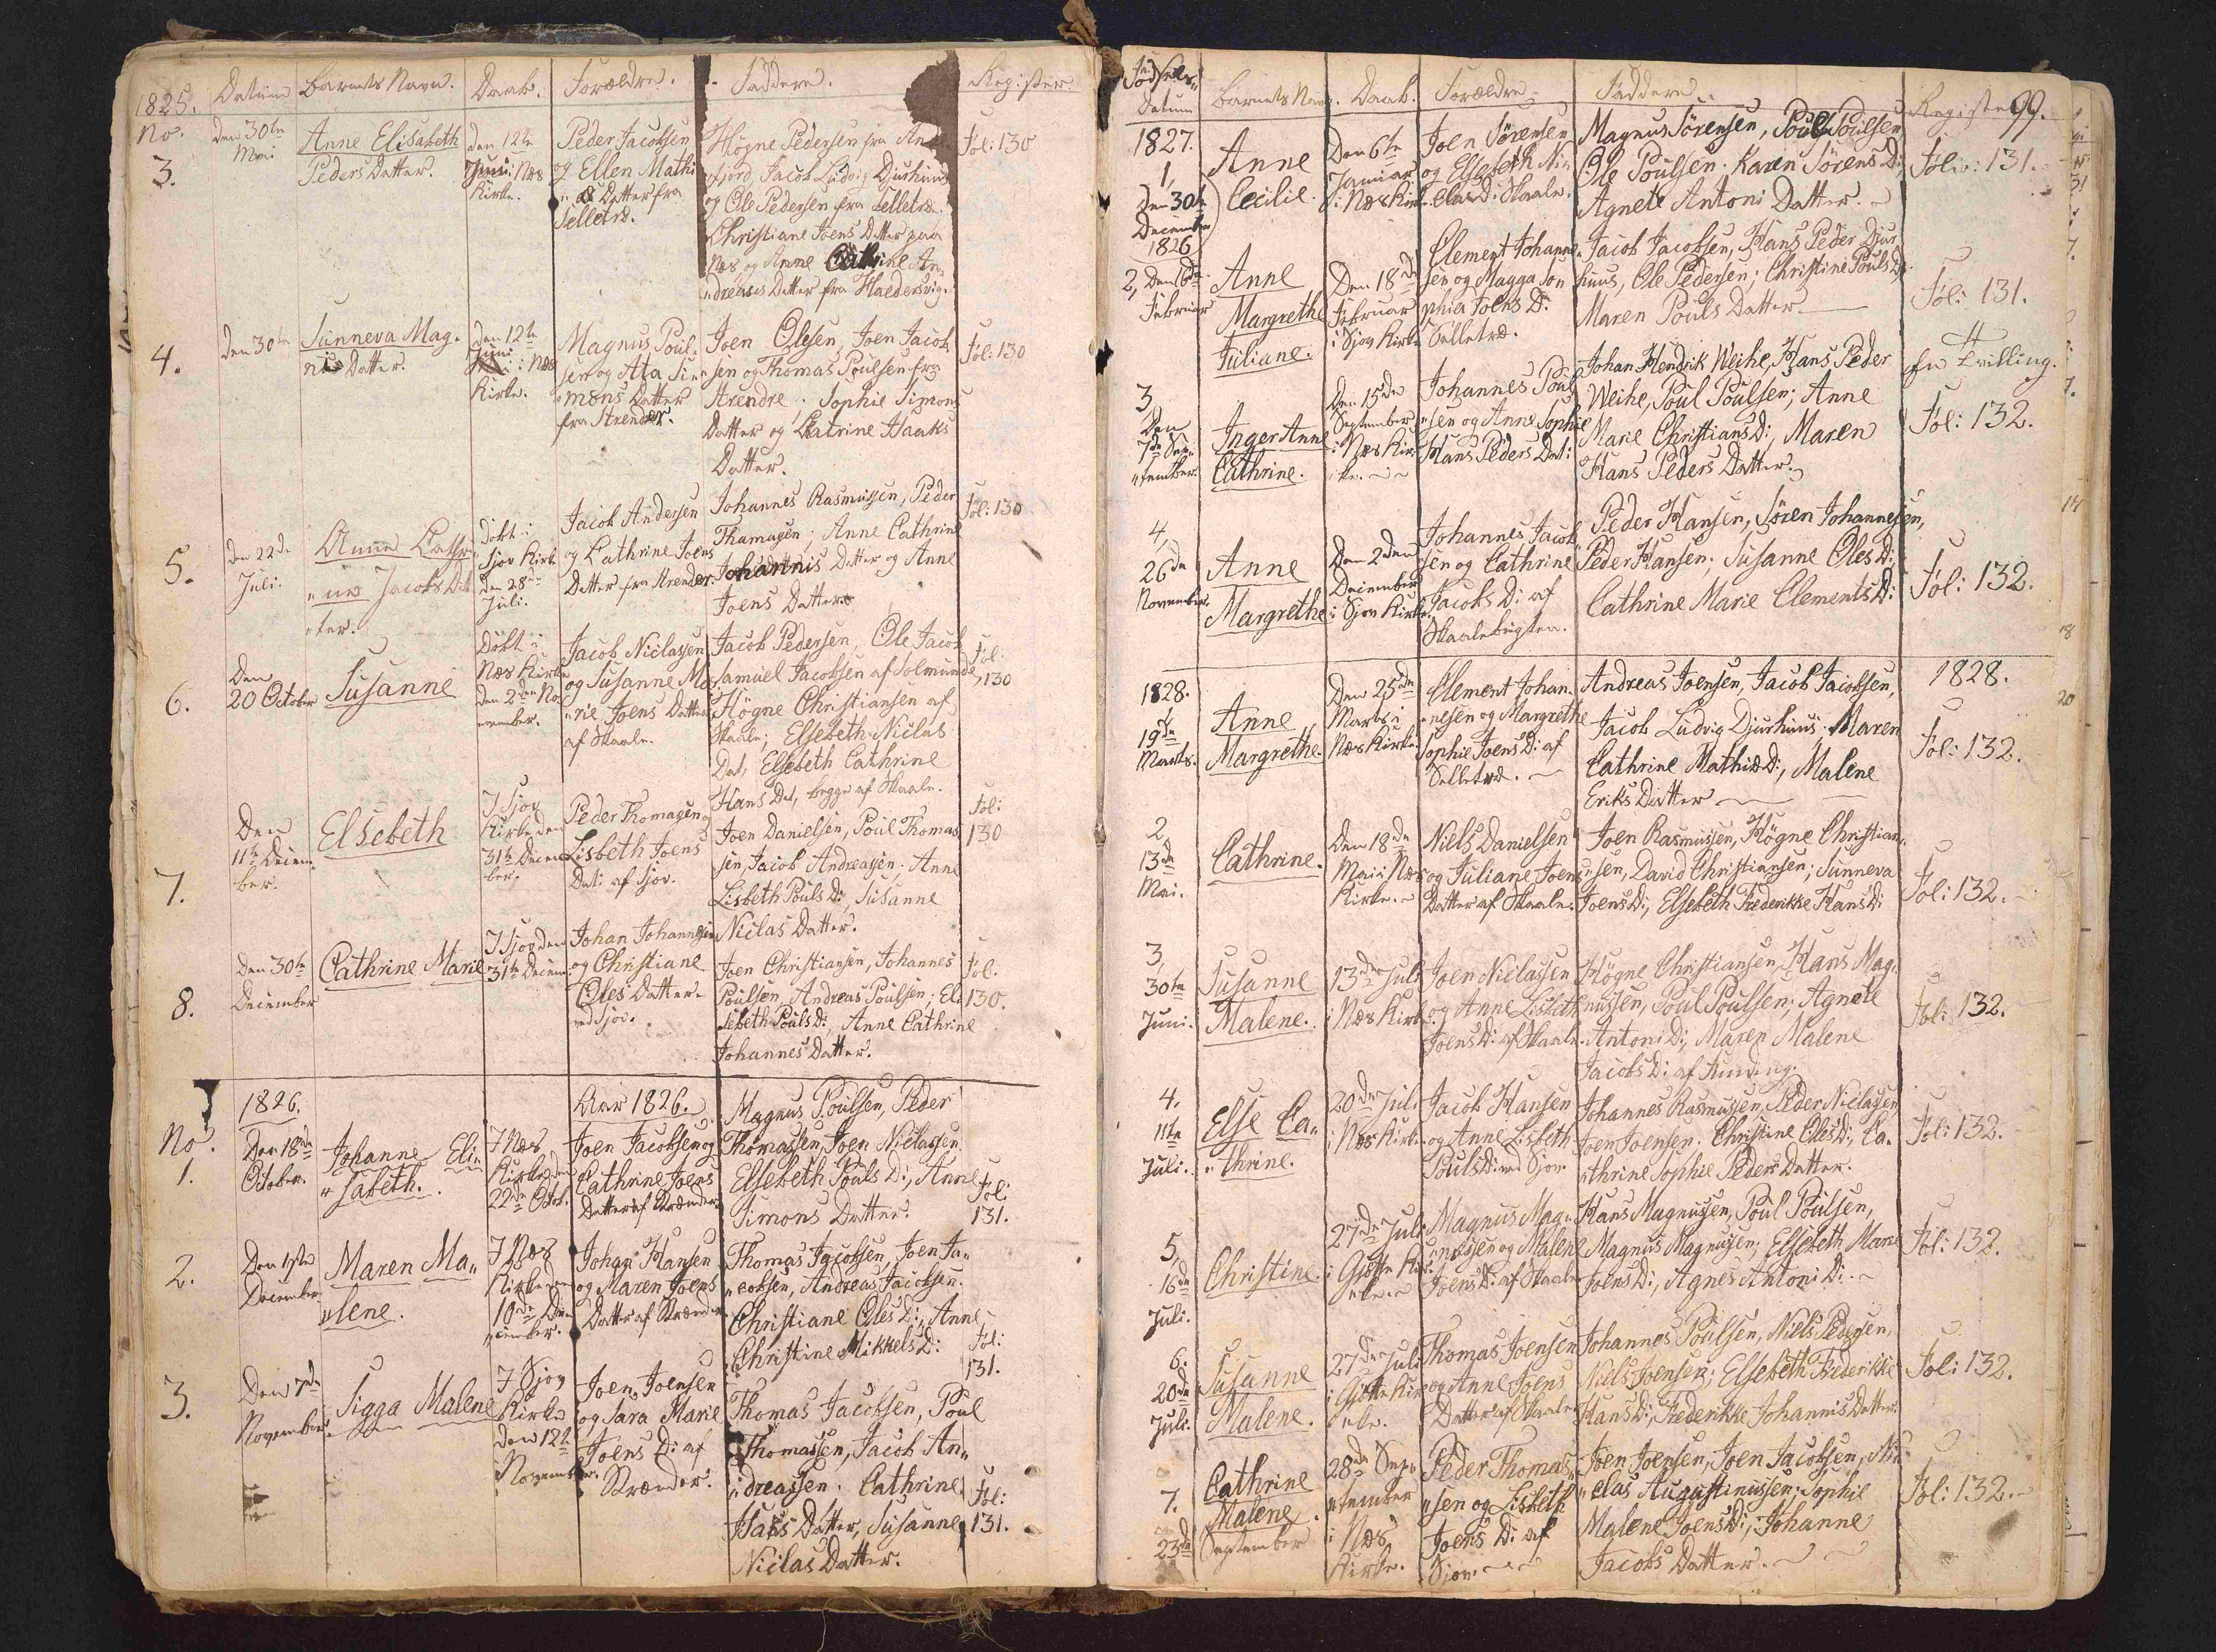 1825. Datum Barnets Navn. Daab. Forældre. Faddere. Register
No. 3. den 30te Mai
Anne Elisabeth
Peders Datter.
den 12te
Juni i Næs
Kirke.
Peder Jacobsen
og Ellen Mathi
Datter fra
Selletræ.
Högne Pedersen fra
fjord, Jacob Ludvig Djurhuus
og Ole Pedersen fra Selletræ.
Christiane Joens Datter paa
Næs og Anne Cathrine An„
„dreases Datter fra Haldersvig.
Fol: 130
4. den 30te
Sunneva Mag„
nus Datter.
den 12te
Juni
i Næs
Kirke.
Magnus Poul„
sen og Ata Si„
„mons Datter
fra Strender.
Joen Olesen, Joen Jacob
sen og Thomas Poulsen fra
Strendre. Sophie Simons
Datter og Catrine Isaaks
Datter.
Fol: 130
5. den 22de
Juli.
Anne Cathr
„ine Jacobs Dat
„ter.
Döbt i
Sjov Kirke
den 28de
Juli.
Jacob Andersen
og Cathrine Joens
Datter fra Strender.
Johannes Rasmussen, Peder
Thamasen; Anne Cathrine
Johannis Datter og Anne
Joens Datter
Fol: 130
6. Den
20 October
Susanne
Döbt i
Næs Kirke
den 2den No
vember.
Jacob Niclasen
og Susanne Ma
„rie Joens Datter
af Skaale.
Jacob Pedersen, Ole Jacob
Samuel Jacobsen af Solmunde
Högne Christiansen af
Skaale; Elsebeth Niclas
Dat, Elsebeth Cathrine
Hans Dat, begge af Skaale.
Fol:
130
7. Den
11te Decem„
ber.
Elsebeth
I Sjov
Kirke den
31te Decem
ber.
Peder Thomasen og
Lisbeth Joens
Dat: af Sjov.
Joen Danielsen, Poul Thomas
sen, Jacob Andreasen; Anne
Lisbeth Pouls D:, Susanne
Niclas Datter.
Fol:
130
8. Den 30te
December
Cathrine Marie
I Sjov den
31te Decem:
Johan Johannesen
og Christiane
Oles Datter
ved Sjov.
Joen Christiansen, Johannes
Poulsen, Andreas Poulsen; El„
sebeth Pouls D:, Anne Cathrine
Johannes Datter.
Fol.
130.
1826. Aar 1826.
No. 1. Den 18de
October.
Johanne Eli„
„sabeth.
I Næs
Kirke den
22de Octob.
Joen Jacobsen og
Cathrine Joens
Datter af Strender
Magnus Poulsen, Peder
Thomassen, Joen Niclassen.
Elsebeth Pouls D:, Anne
Simons Datter.
Fol:
131.
2. Den 1ste
December
Maren Ma„
„lene.
I Næs
Kirke den
10de De„
„cember.
Johan Hansen
og Maren Joens
Datter af Strender
Thomas Jacobsen, Joen Ja„
„cobsen, Andreas Jacobsen.
Christiane Oles D:, Anne
Christine Mikkels D:
Fol:
131.
3. Den 7de
November.
Sigga Malene
I Sjov
Kirke
den 12te
November.
Joen Joensen
og Sara Marie
Joens D: af
Strender.
Thomas Jacobsen, Poul
Thomassen, Jacob An„
„dreassen. Cathrine
Isaks Datter, Susanne
Niclas Datter.
Fol:
131.
Födsels„
Datum Barnets Navn. Daab. Forældre. Faddere. Register 99.
1827.
1, Den 30te
December
1826
Anne
Cecilie.
Den 6te
Januar
i Næs Kirke
Joen Sörensen
og Elsebeth Ni„
clas D: Skaale.
Magnus Sörensen, Poul Poulsen
Ole Poulsen. Karen Sörens D:,
Agnete Antoni Datter.
Folio: 131.
2, Den 6te
Februar
Anne
Margrethe
Juliane.
Den 18de
Februar
i Sjov Kirke
Clement Johanne„
sen og Magga So„
phia Joens D:
Selletræ.
Jacob Jacobsen, Hans Peder Djur„
huus, Ole Pedersen; Christine Pouls D:
Maren Pouls Datter
Fol: 131.
en Tvilling.
3, Den
7de Sep„
„tember.
Inger Anne
Cathrine.
Den 15de
September
i Næs Kir„
ke.
Johannes Poul
„sen og Anne Sophie
Hans Peders Dat:
Johan Hendrik Weihe, Hans Peder
Weihe, Poul Poulsen; Anne
Marie Christians D:, Maren
Hans Peders Datter.
Fol: 132.
4, 26de
November.
Anne
Margrethe
Den 2den
December
i Sjov Kirke
Johannes Jacob
sen og Cathrine
Jacobs D: af
Skaalebugten.
Peder Hansen, Sören Johannesen,
Peder Hansen; Susanne Oles D:
Cathrine Marie Clements D:
Fol: 132.
1828. 1828.
1, 19de
Marts.
Anne
Margrethe.
Den 25de
Marts i
Næs Kirke
Clement Johan„
„nesen og Margrethe
Sophie Joens D: af
Selletræ.
Andreas Joensen, Jacob Jacobsen,
Jacob Ludvig Djurhuus. Maren
Cathrine Mathiæ D:, Malene
Eriks Datter
Fol: 132.
2, 13de
Mai.
Cathrine.
Den 18de
Mai i Næs
Kirke.
Niels Danielsen
og Juliane Joens
Datter af Skaale.
Joen Rasmussen, Högne Christian„
„sen, David Christiansen; Sunneva
Joens D:, Elsebeth Frederikke Hans D:
Fol: 132.
3, 30te
Juni.
Susanne
Malene.
13de Juli
i Næs Kirke
Joen Niclassen
og Anne Lisbeth
Joens D: af Skaale.
Högne Christiansen, Hans Mag„
nussen, Poul Poulsen; Agnete
Antoni D:, Maren Malene
Jacobs D: af Funding.
Fol: 132.
4. 11te
Juli.
Else Ca„
„thrine.
20de Juli
i Næs Kirke
Jacob Hansen
og Anne Lisbeth
Pouls D: ved Sjov.
Johannes Rasmussen, Peder Niclasen
Joen Joensen. Christine Oles D:, Ca„
„thrine Sophie Peders Datter.
Fol: 132.
5, 16de
Juli.
Christine.
27de Juli
i Gjötte Kir„
„ke.
Magnus Mag„
„nussen og Malene
Joens D: af Skaale
Hans Magnussen, Poul Poulsen,
Magnus Magnusen; Elsebeth Marie
Joens D:, Agnes Antoni D:.
Fol: 132.
6. 20de
Juli.
Susanne
Malene.
27de Juli
i Gjötte Kir„
„ke.
Thomas Joensen
og Anne Joens
Datter af Skaale
Johannes Poulsen, Niels Pedersen,
Niels Joensen; Elsebeth Frederikke
Hans D:, Frederikke Johannis Datter.
Fol: 132.
7. 23de September
Cathrine
Malene.
28de Sep„
„tember
i Næs
Kirke.
Peder Thomas„
„sen og Lisbeth
Joens D: af
Sjov.
Joen Joensen, Joen Jacobsen, Ni„
„clas Augustinussen; Sophie
Malene Joens D:, Johanne
Jacobs Datter.
Fol: 132.